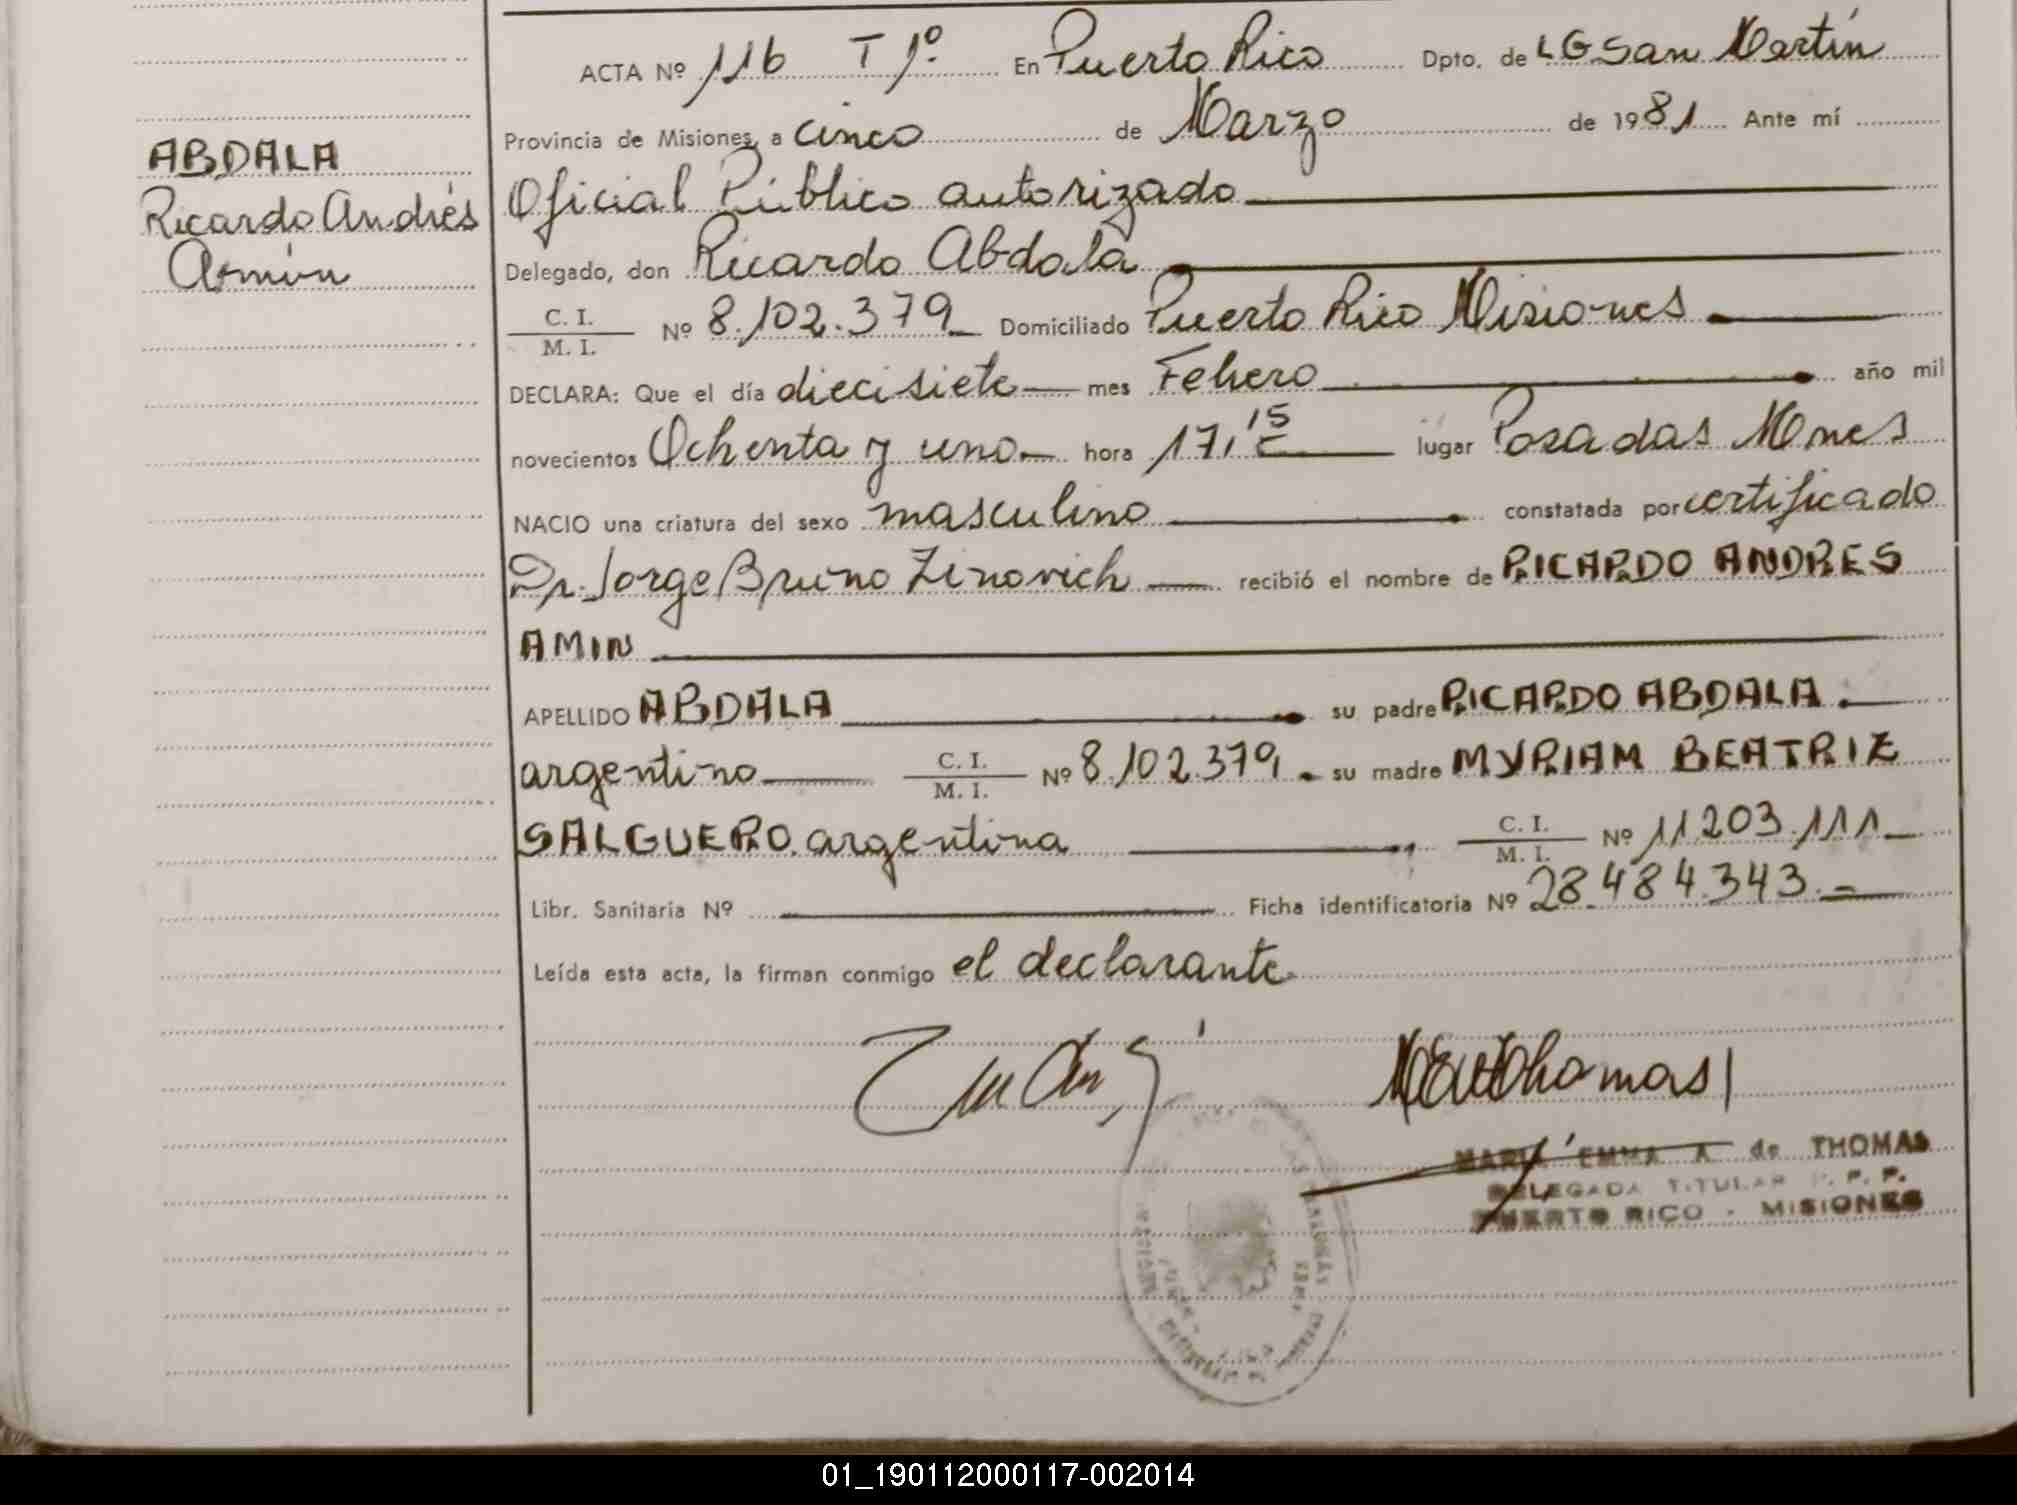 ACTA Nº 116 T 1º En Puerto Rico Dpto. de LG San Martín
Provincia de Misiones, a cinco de Marzo de 1981 Ante mí
Oficial Público autorizado
Delegado, don Ricardo Abdala
C. I.
M. I. Nº 8.102.379 Domiciliado Puerto Rico Misiones
DECLARA: Que el día diecisiete mes Febrero año mil
novecientos Ochenta y uno hora 17,15 lugar Posadas Mnes
NACIO una criatura del sexo masculino constatada por certificado
Dr. Jorge Bruno Zinovich recibió el nombre de RICARDO ANDRES
AMIN
APELLIDO ABDALA su padre RICARDO ABDALA.
argentino C. I.
M. I. Nº 8.102.379. su madre MYRIAM BEATRIZ
SALGUERO. argentina C. I.
M. I. Nº 11203.111
Libr. Sanitaria Nº Ficha identificatoria Nº 28.484.343.
Leída esta acta, la firman conmigo el declarante
ABDALA
Ricardo Andrés
Amín
MARIA EMMA A de THOMAS
DELEGADA TITULAR P. P.
PUERTO RICO - MISIONES
01_190112000117-002014